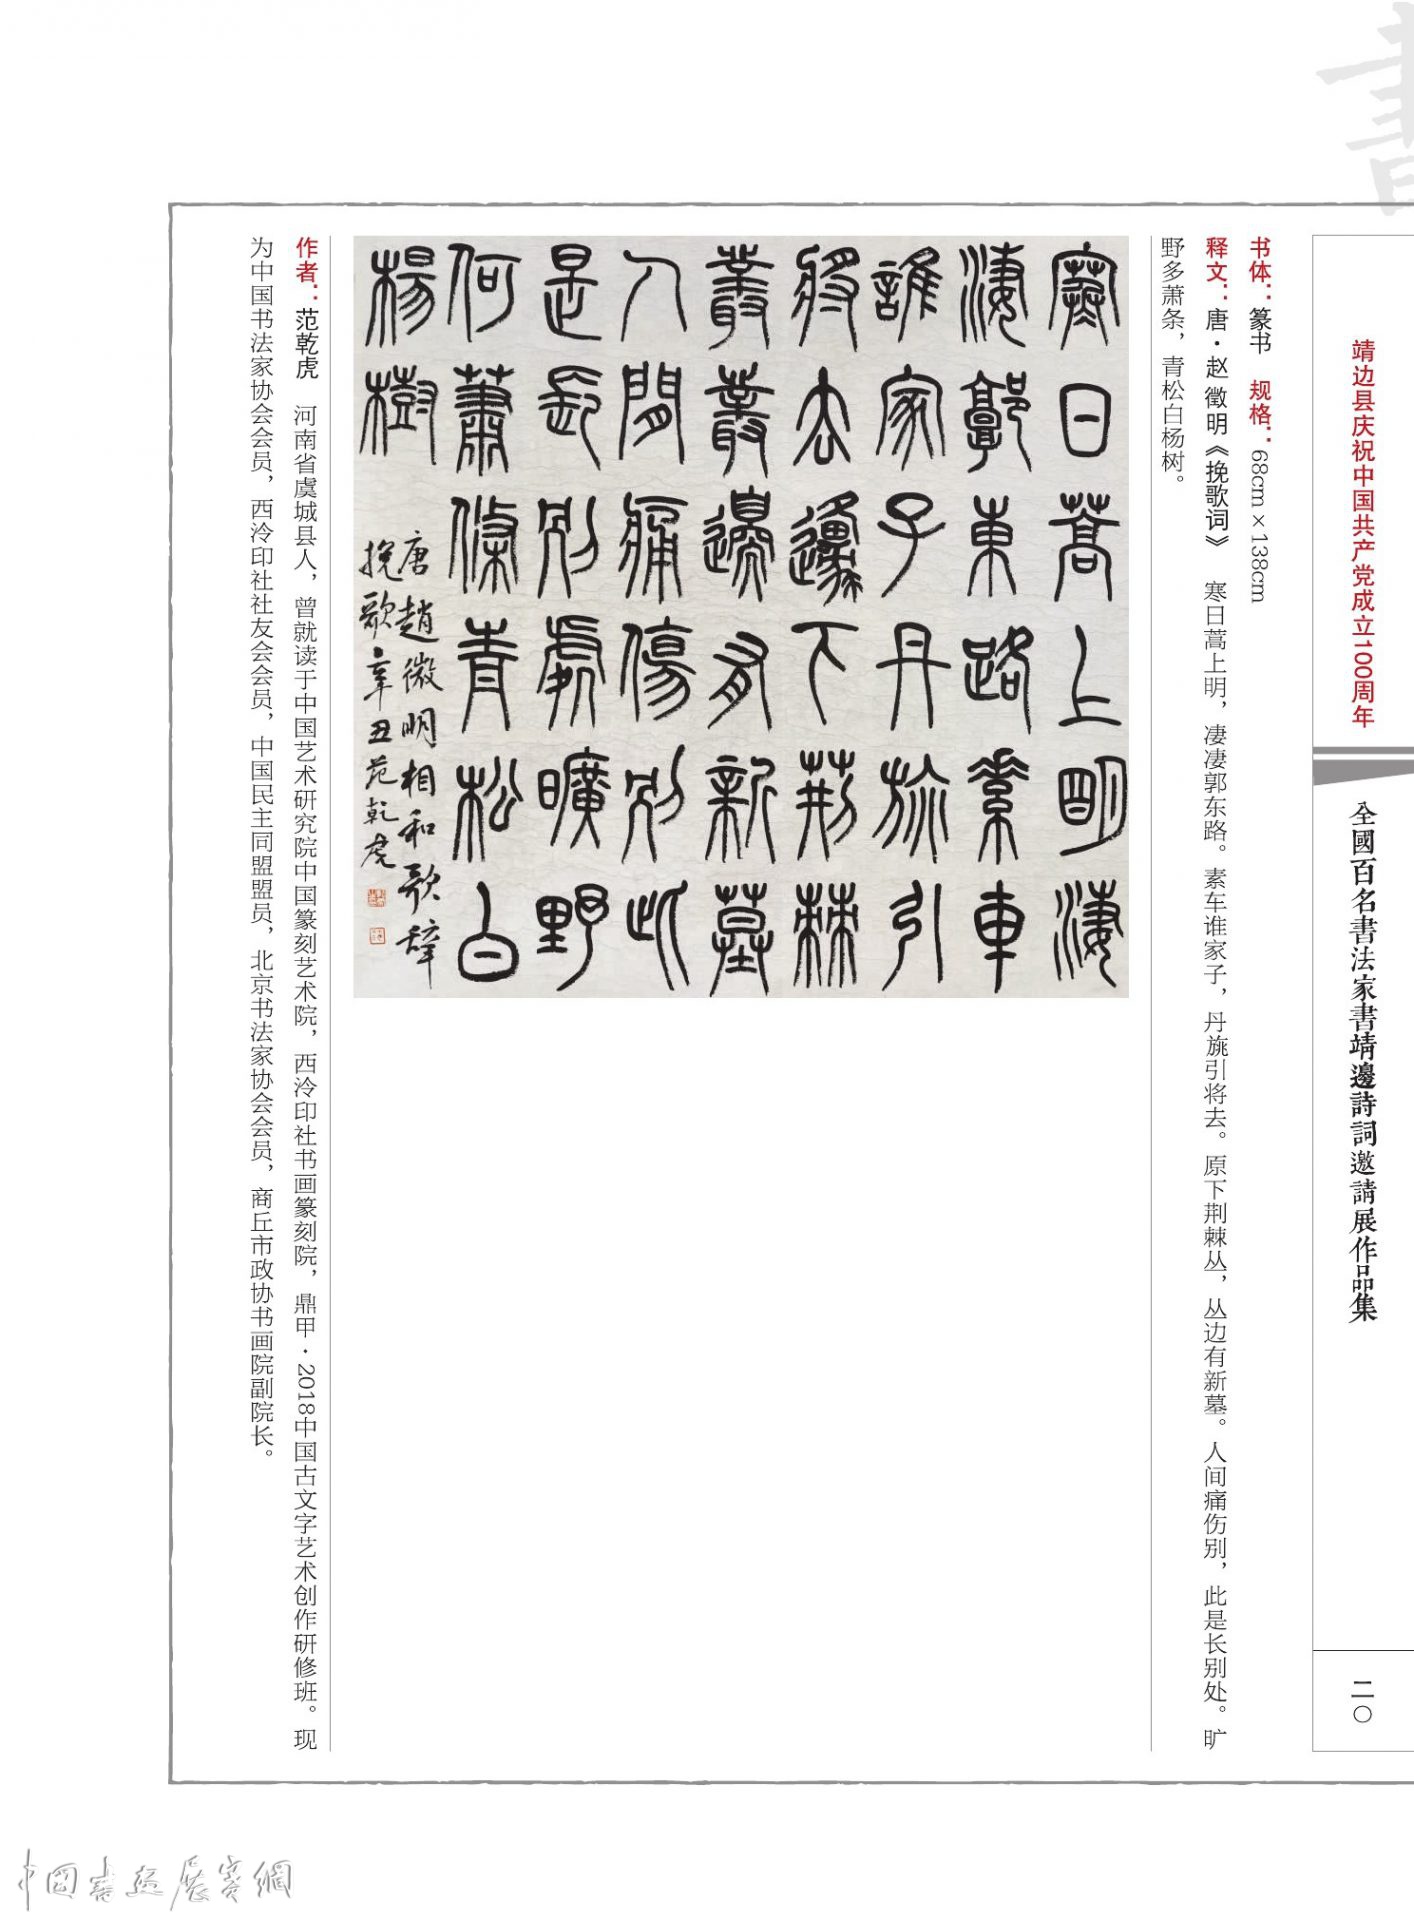 靖边县庆祝中国共产党成立100周年
全國百名書法家書靖邊詩詞邀請展作品集
二〇
书体：篆书　规格：68cm×138cm
释文：唐·赵徵明《挽歌词》　寒日蒿上明，凄凄郭东路。素车谁家子，丹旐引将去。原下荆棘丛，丛边有新墓。人间痛伤别，此是长别处。旷
野多萧条，青松白杨树。
寒日蒿上明淒
淒郭東路素車
誰家子丹旐引
將去邍下荊棘
叢叢邊有新墓
人間痛傷別此
是長別處曠野
何蕭條青松白
楊樹
唐趙微明相和歌辞
挽歌辛丑范乾虎
作者：范乾虎　河南省虞城县人，曾就读于中国艺术研究院中国篆刻艺术院，西泠印社书画篆刻院，鼎甲·2018中国古文字艺术创作研修班。现
为中国书法家协会会员，西泠印社社友会会员，中国民主同盟盟员，北京书法家协会会员，商丘市政协书画院副院长。
書
中國書画展賽網